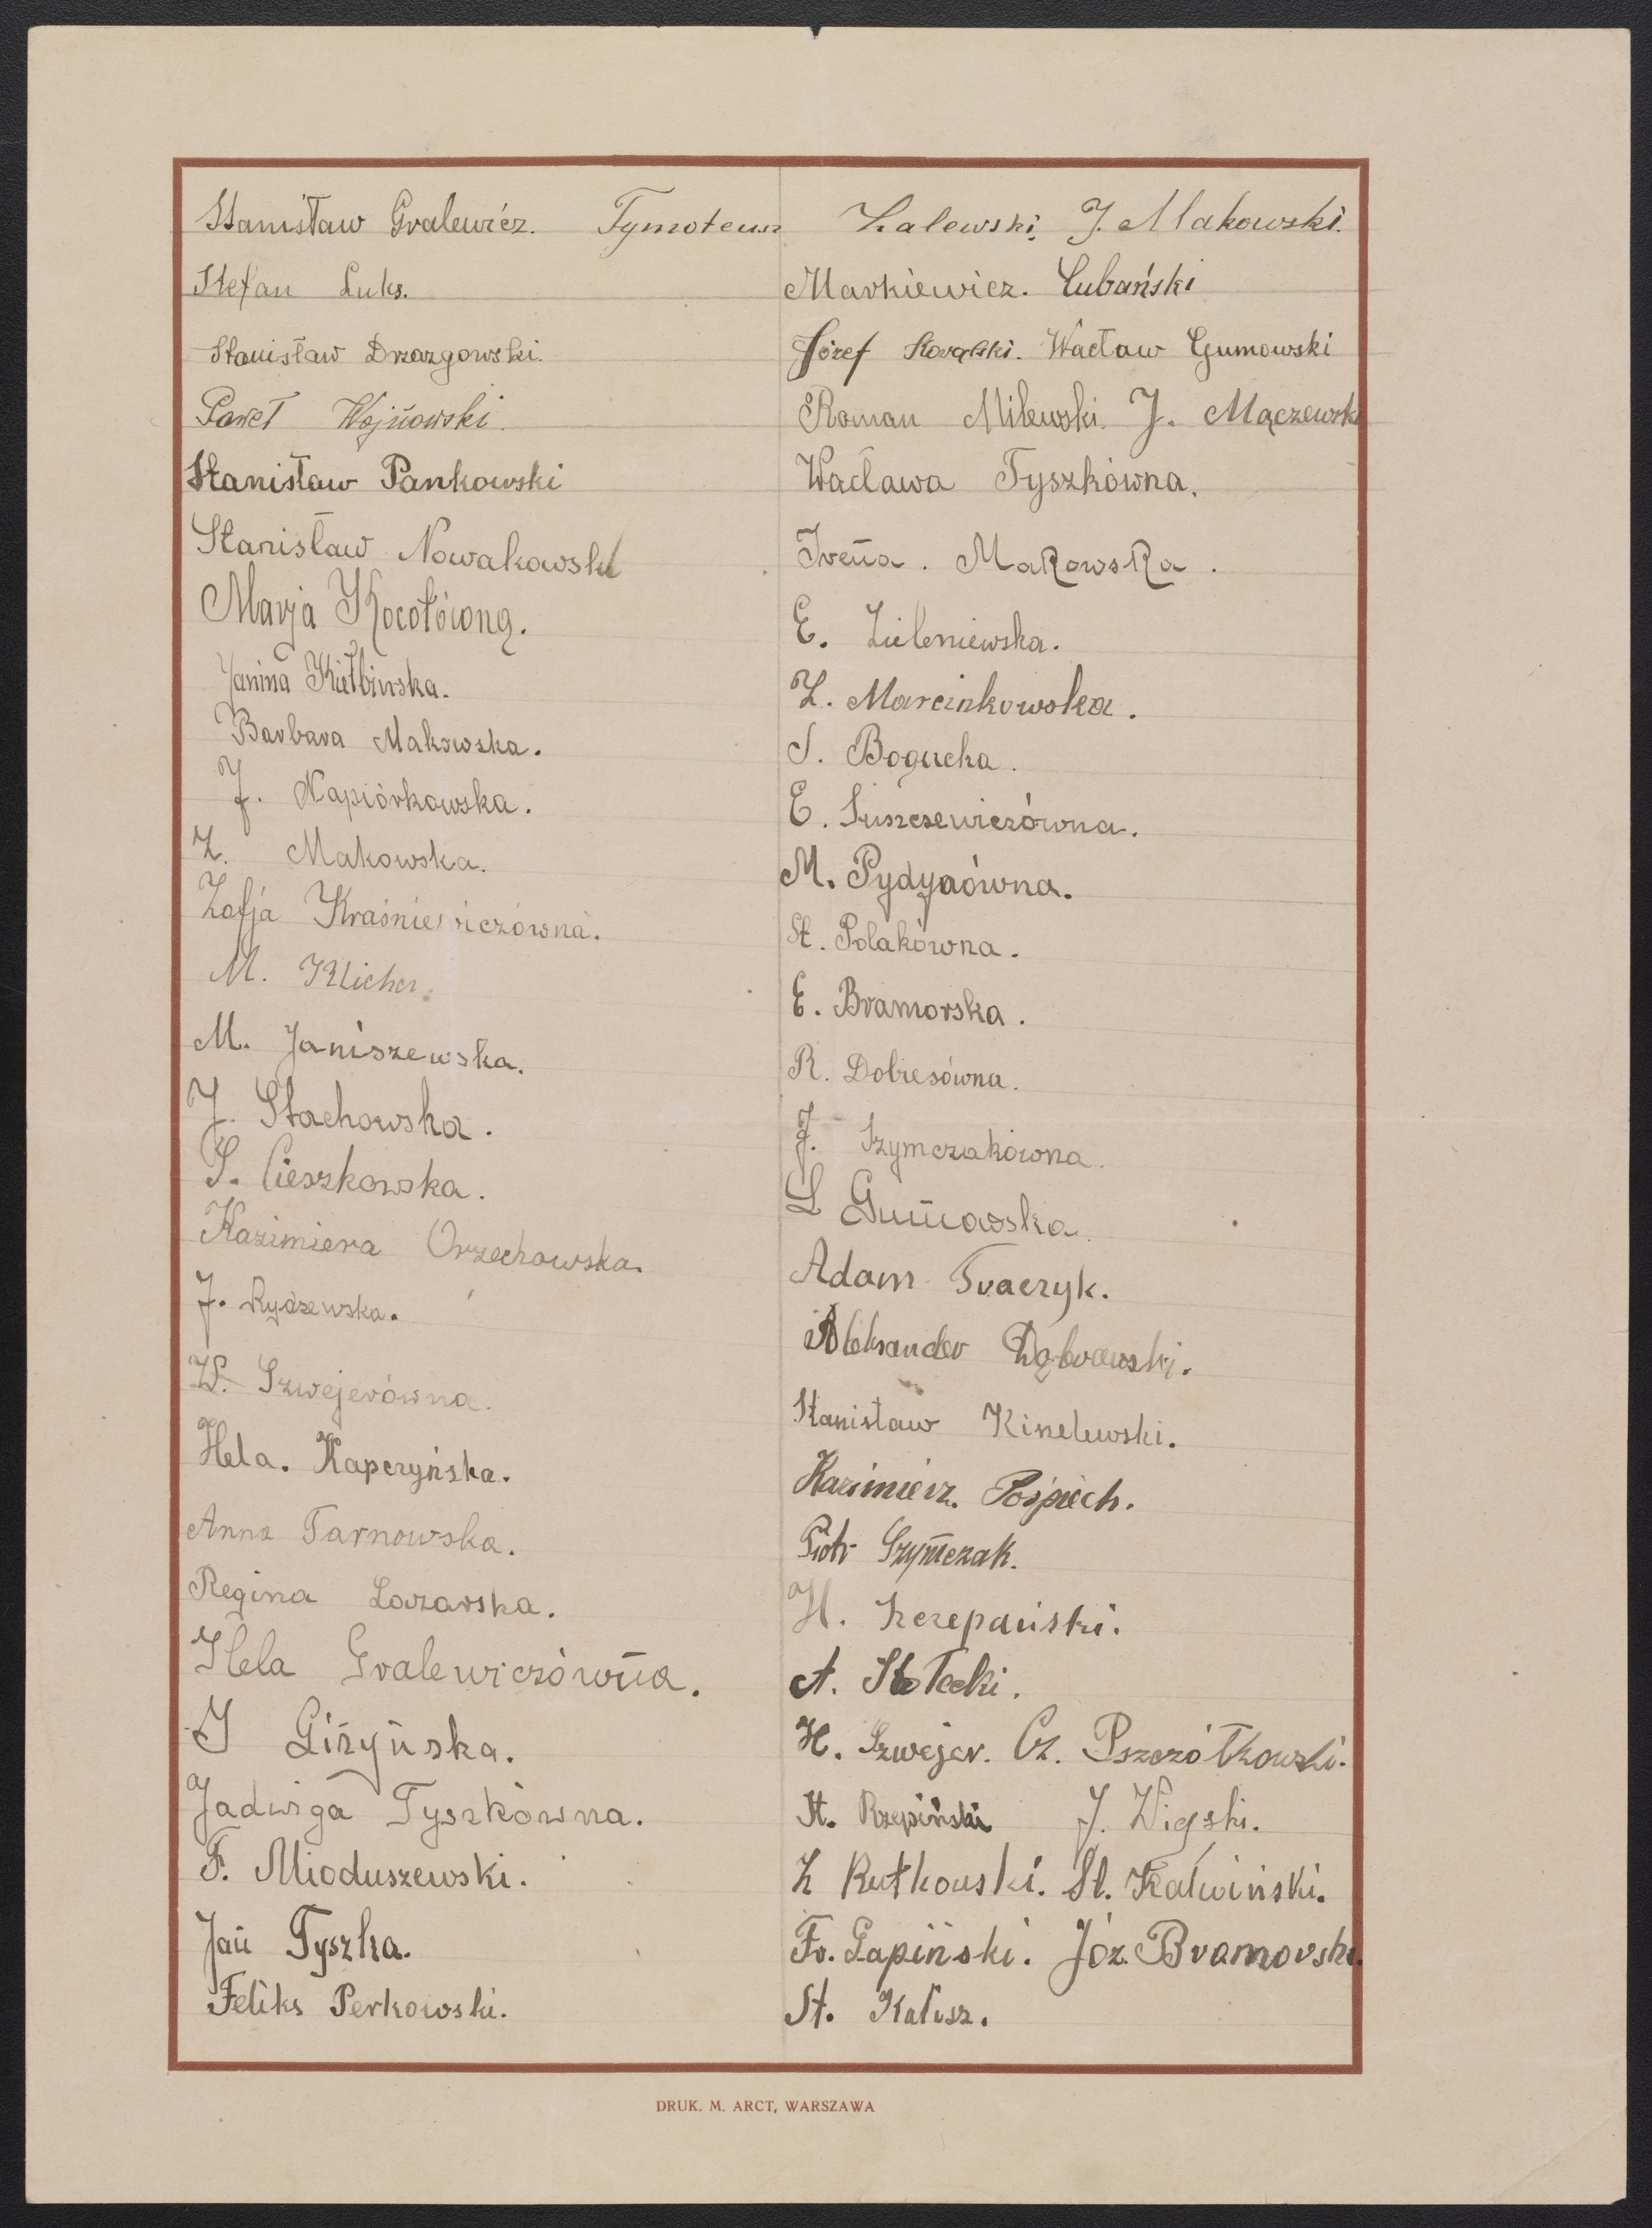 Stanisław Gralewicz. Tymoteusz Zalewski, J. Makowski.
Stefan Luks.
Stanisław Drzazgowski.
Paweł Wojnowski.
Stanisław Pankowski
Stanisław Nowakowski
Marja Kocołówna.
Janina Kiełbińska.
Barbara Makowska.
J. Napiórkowska.
Z. Makowska.
Zofja Kraśniewiczówna.
M. Klicher.
M. Janiszewska.
J. Stachowska.
S. Cieszkowska.
Kazimiera Orzechowska.
J. Rydzewska.
W. Szwejerówna.
Hela. Kapczyńska.
Anna Tarnowska.
Regina Lazarska.
Hela Gralewiczówna.
J Giżyńska.
Jadwiga Tyszkówna.
F. Mioduszewski.
Jan Tyszka.
Feliks Perkowski.
Markiewicz. Lubański
Józef Kowalski. Wacław Gumowski
Roman Milewski. J. Mączewski
Wacława Tyszkówna.
Irena. Makowska.
E. Zieleniewska.
Z. Marcinkowska.
S. Bogucka.
E. Suszczewiczówna.
M. Pydynówna.
St. Polakówna.
E. Bramorska.
R. Dobiesówna.
J. Szymczakówna.
L Gumowska.
Adam Traczyk.
Aleksander Dąbrowski.
Stanisław Kinelewski.
Kazimierz. Pośpiech.
Piotr Szymczak.
H. Szczepański.
A. Stołecki.
H. Szwejer. Cz. Pszczółkowski.
St. Rzepiński J. Wigski.
Z Rutkowski. St. Kalwiński.
Fr. Łapiński. Józ. Bramorski.
St. Kałusz.
DRUK. M. ARCT, WARSZAWA